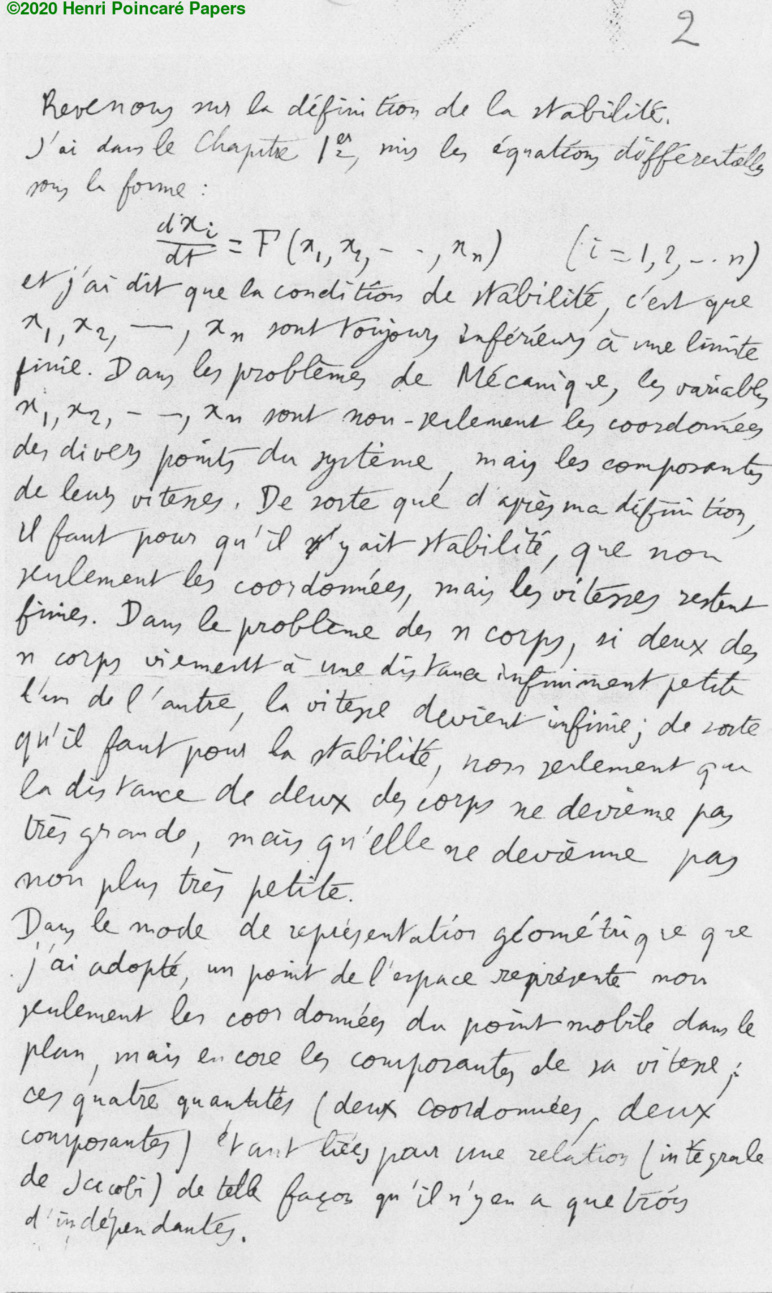 ©2020 Henri Poincaré Papers
2
Revenons sur la définition de la stabilité.
J'ai dans le Chapitre 1er, mis les équations différentielles
sous la forme :
dxi/dt = F(x1, x2, - -, xn) (i = 1, 2, -.. n)
et j'ai dit que la condition de stabilité, c'est que
x1, x2, —, xn sont toujours inférieurs à une limite
finie. Dans les problèmes de Mécanique, les variables
x1, x2, - -, xn sont non-seulement les coordonnées
des divers points du système, mais les composantes
de leurs vitesses. De sorte que d'après ma définition,
il faut pour qu'il y ait stabilité, que non
seulement les coordonnées, mais les vitesses restent
finies. Dans le problème des n corps, si deux des
n corps viennent à une distance infiniment petite
l'un de l'autre, la vitesse devient infinie; de sorte
qu'il faut pour la stabilité, non seulement que
la distance de deux des corps ne devienne pas
très grande, mais qu'elle ne devienne pas
non plus très petite.
Dans le mode de représentation géométrique que
j'ai adopté, un point de l'espace représente non
seulement les coordonnées du point mobile dans le
plan, mais encore les composantes de sa vitesse;
ces quatre quantités (deux coordonnées, deux
composantes) étant liées par une relation (intégrale
de Jacobi) de telle façon qu'il n'y en a que trois
d'indépendantes.